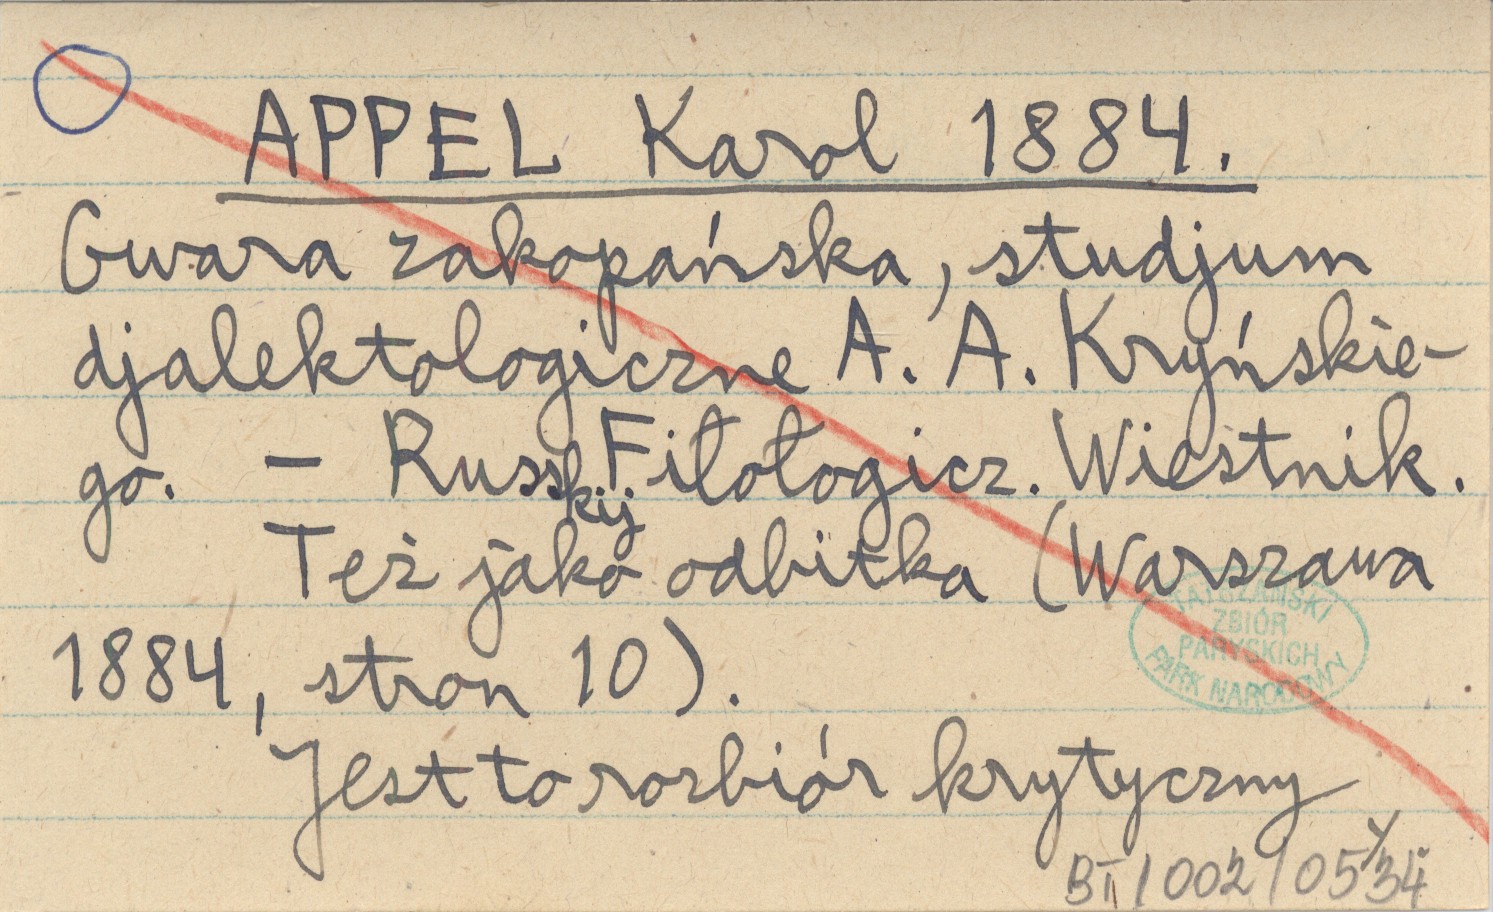 APPEL Karol 1884.
Gwara zakopańska, studjum
djalektologiczne A. A. Kryńskie-
go. – Russkij Filologicz. Wiestnik.
Też jako odbitka (Warszawa
1884, stron 10).
Jest to rozbiór krytyczny
TATRZAŃSKI
ZBIÓR
PARYSKICH
PARK NARODOWY
BT/002/05/34